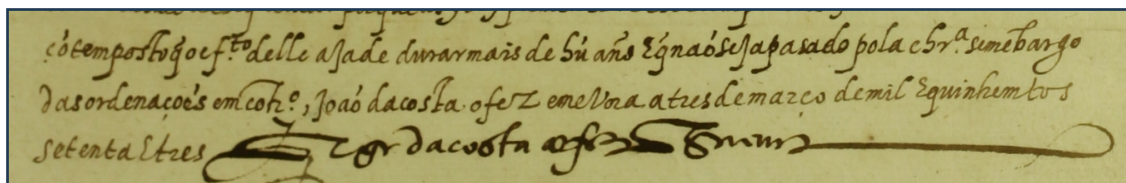 posto q̃ o ef.to delle aja de durar mais de hũ año E q̃ não seja pasado pola chr.ª sem ẽbargo
das ordenações em cõtr.º, João da costa o fez em euora a tres de março de mil E quinhemtos
setenta E tres dacosta o fez escreuer